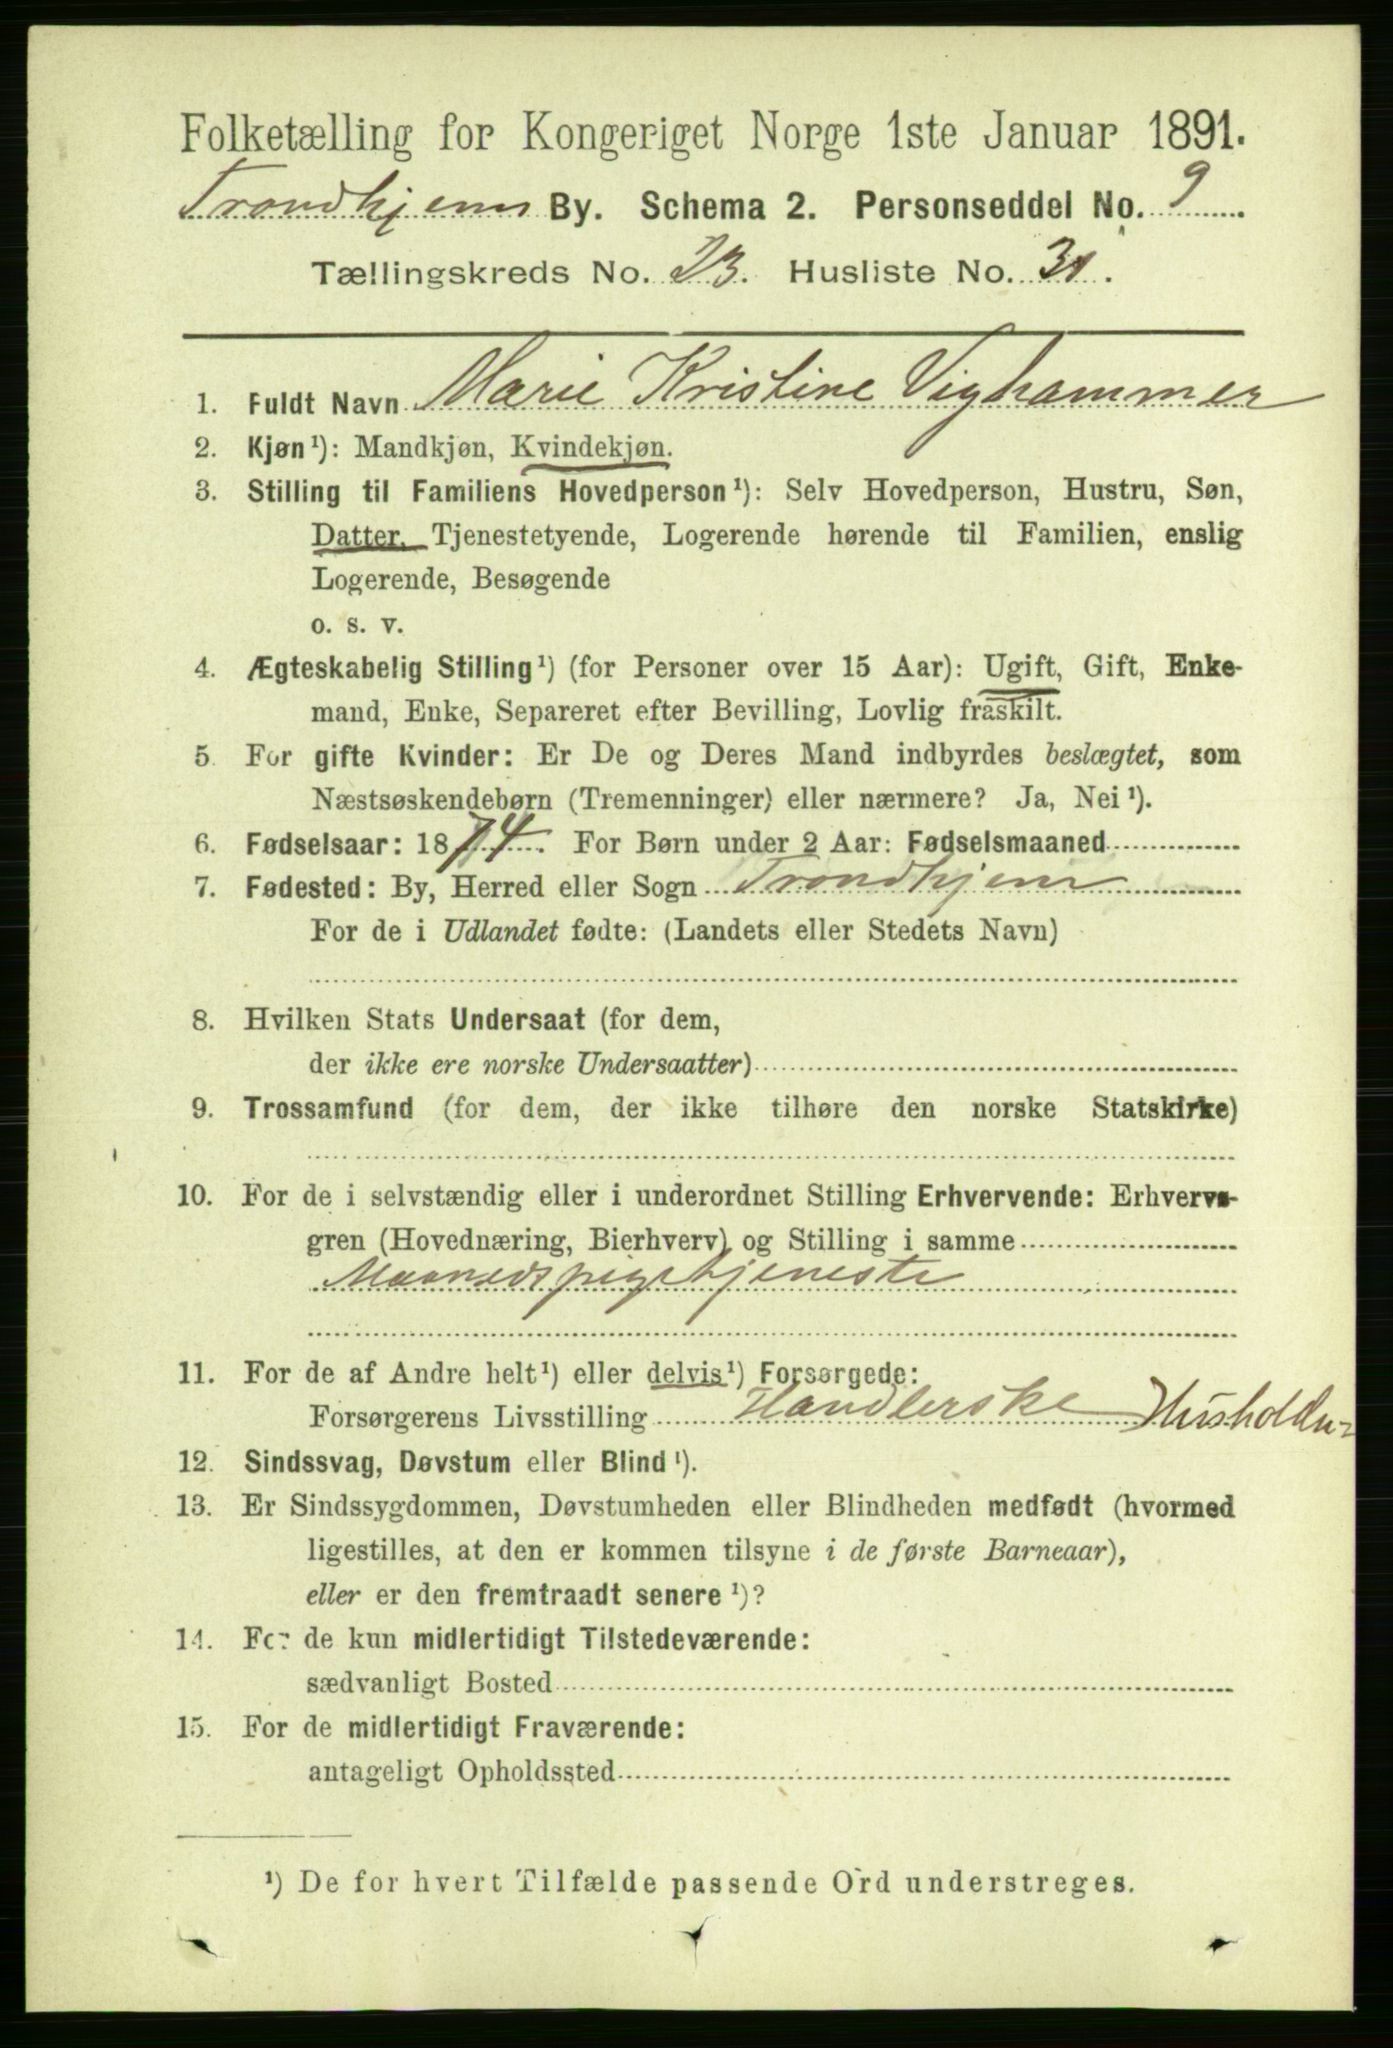 Folketælling for Kongeriget Norge 1ste Januar 1891.
Trondhjems By. Schema 2. Personseddel No. 9
Tællingskreds No. 23. Husliste No. 31.
1. Fuldt Navn Marie Kristine Vighammer
2. Kjøn¹): Mandkjøn, Kvindekjøn.
3. Stilling til Familiens Hovedperson¹): Selv Hovedperson, Hustru, Søn,
Datter, Tjenestetyende, Logerende hørende til Familien, enslig
Logerende, Besøgende
o. s. v.
4. Ægteskabelig Stilling¹) (for Personer over 15 Aar): Ugift, Gift, Enke-
mand, Enke, Separeret efter Bevilling, Lovlig fraskilt.
5. For gifte Kvinder: Er De og Deres Mand indbyrdes beslægtet, som
Næstsøskendebørn (Tremenninger) eller nærmere? Ja, Nei¹).
6. Fødselsaar: 1874. For Børn under 2 Aar: Fødselsmaaned
7. Fødested: By, Herred eller Sogn Trondhjem
For de i Udlandet fødte: (Landets eller Stedets Navn)
8. Hvilken Stats Undersaat (for dem,
der ikke ere norske Undersaatter)
9. Trossamfund (for dem, der ikke tilhøre den norske Statskirke)
10. For de i selvstændig eller i underordnet Stilling Erhvervende: Erhvervs-
gren (Hovednæring, Bierhverv) og Stilling i samme
Maanedspigetjeneste
11. For de af Andre helt¹) eller delvis¹) Forsørgede:
Forsørgerens Livsstilling Handlerske Husholdn-
12. Sindssvag, Døvstum eller Blind¹).
13. Er Sindssygdommen, Døvstumheden eller Blindheden medfødt (hvormed
ligestilles, at den er kommen tilsyne i de første Barneaar),
eller er den fremtraadt senere¹)?
14. For de kun midlertidigt Tilstedeværende:
sædvanligt Bosted
15. For de midlertidigt Fraværende:
antageligt Opholdssted
¹) De for hvert Tilfælde passende Ord understreges.